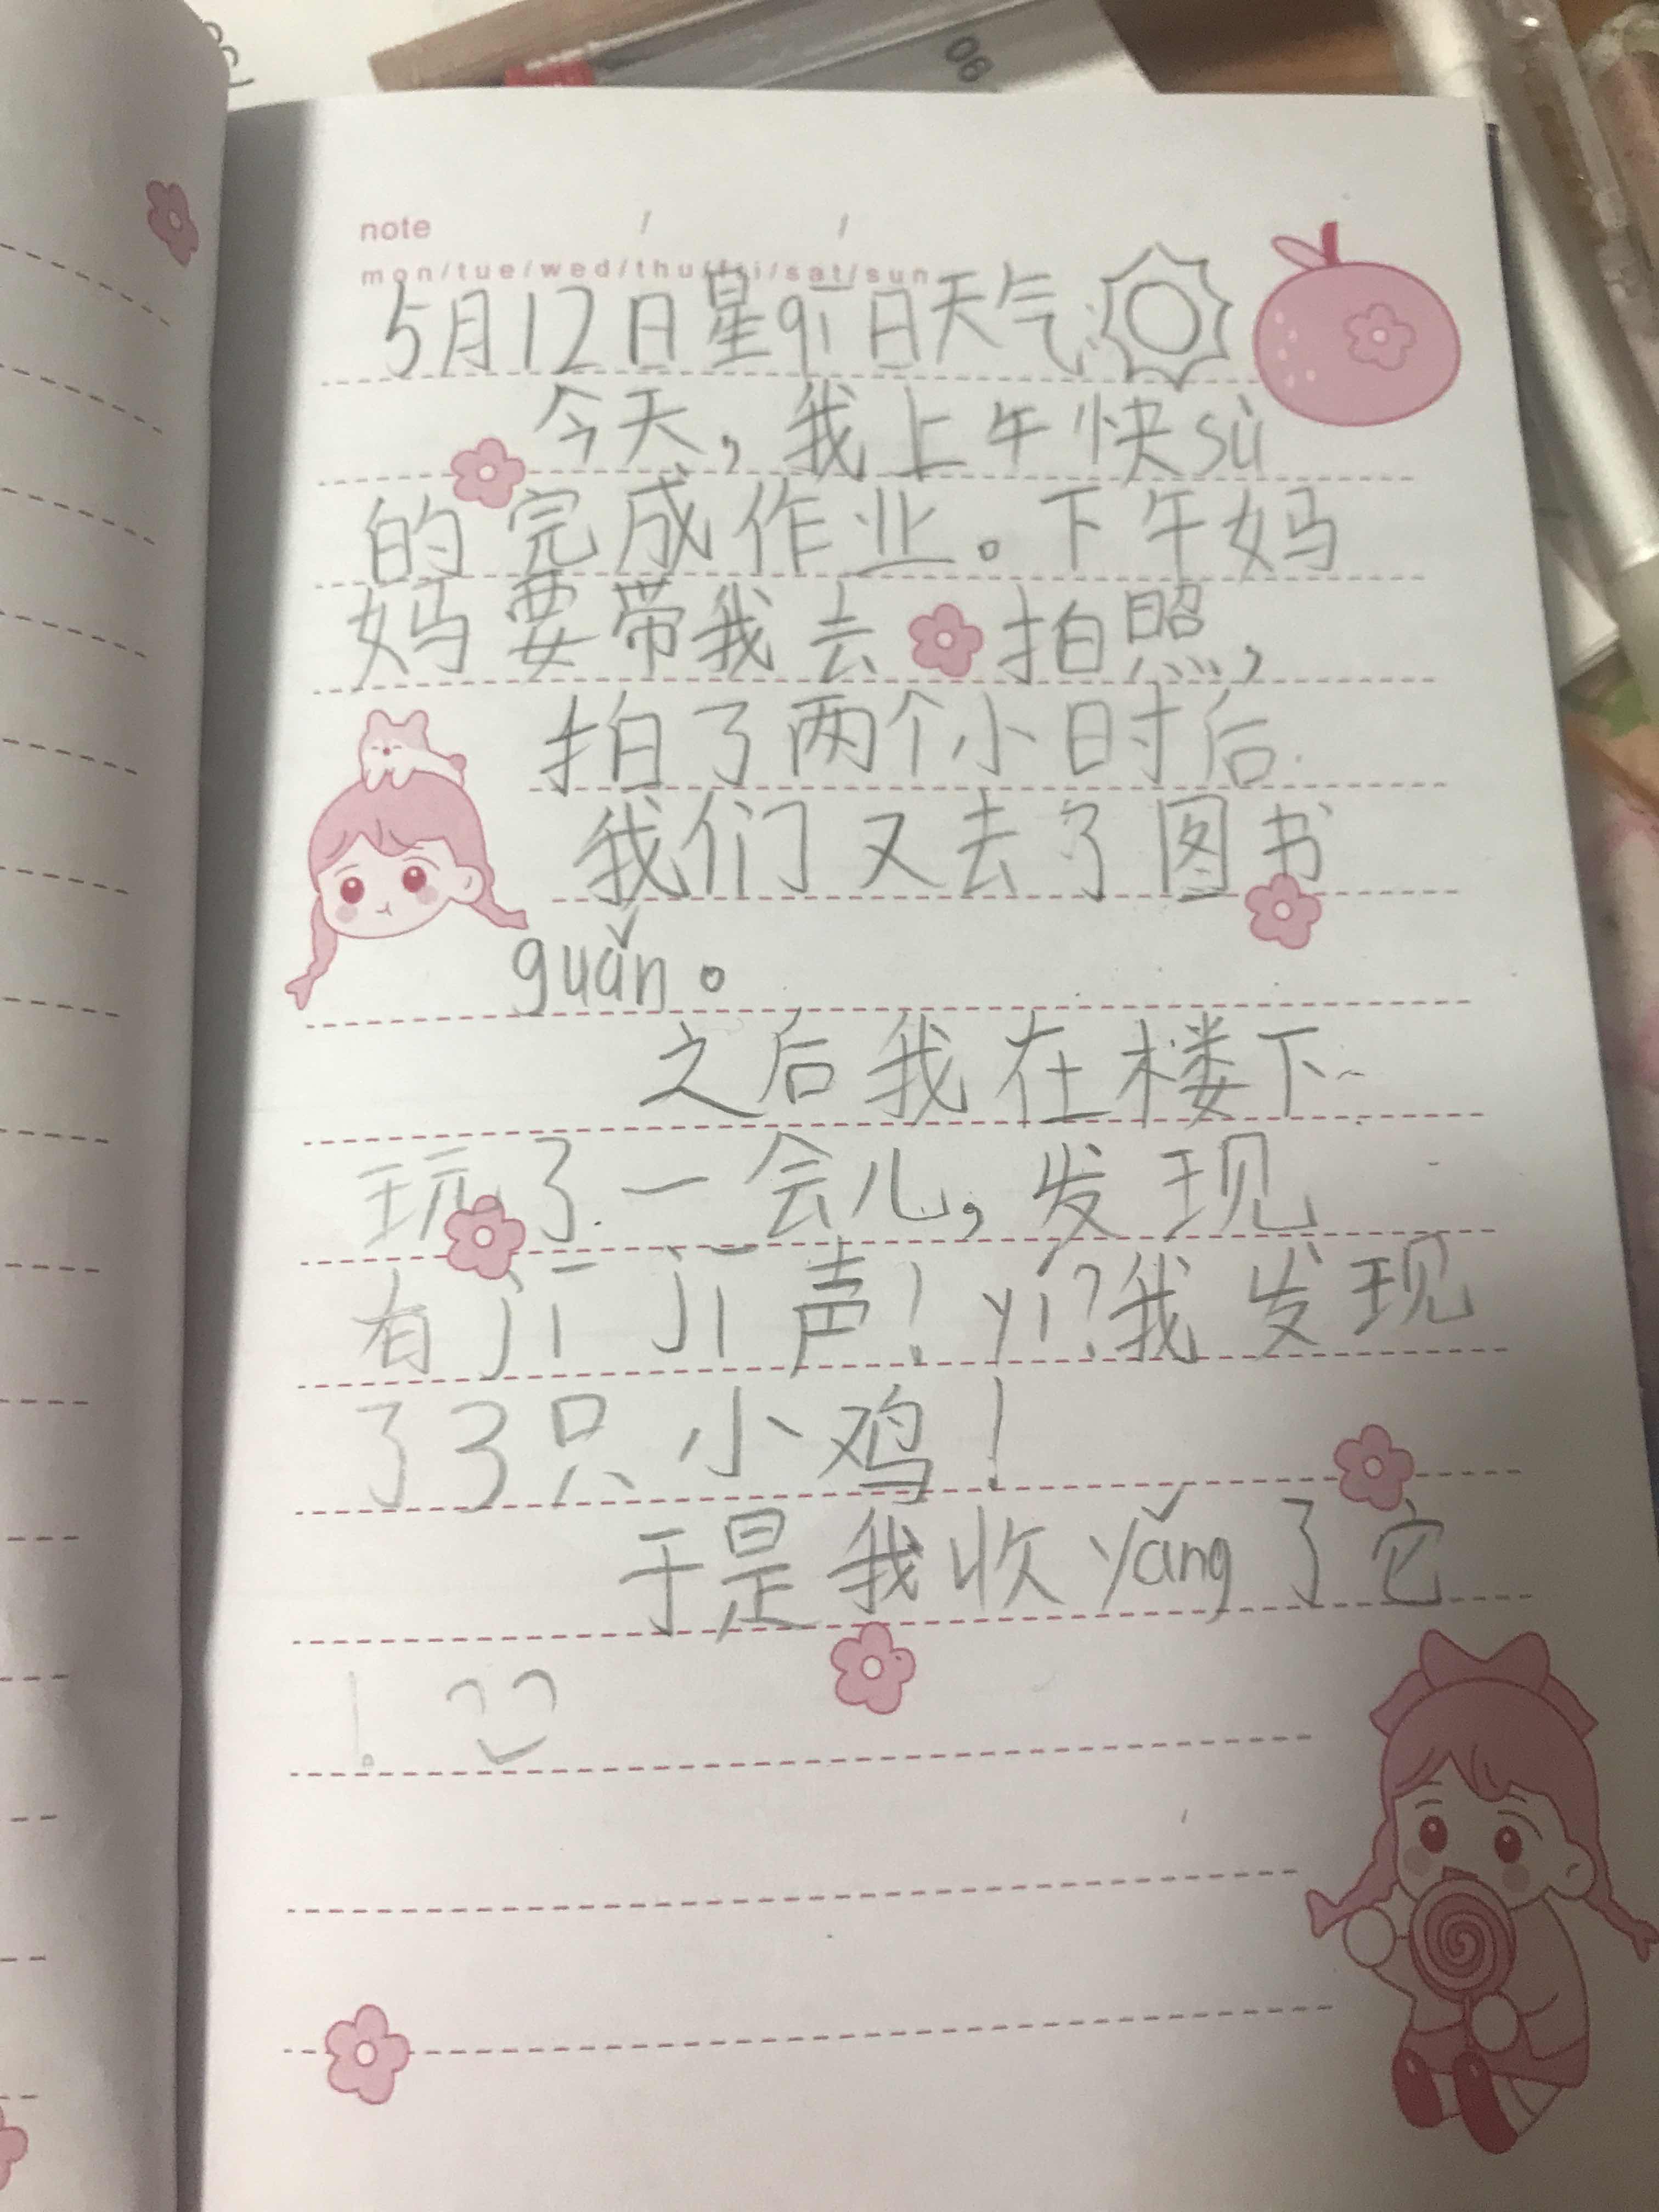 06
note
mon/tue/wed/thu/fri/sat/sun
5月12日星qī日天气:
今天,我上午快sù
的完成作业。下午妈
妈要带我去拍照,
拍了两个小时后
我们又去了图书
guǎn。
之后我在楼下
玩了一会儿,发现
有jī jī声!yí?我发现
了3只小鸡!
于是我收yǎng了它
!